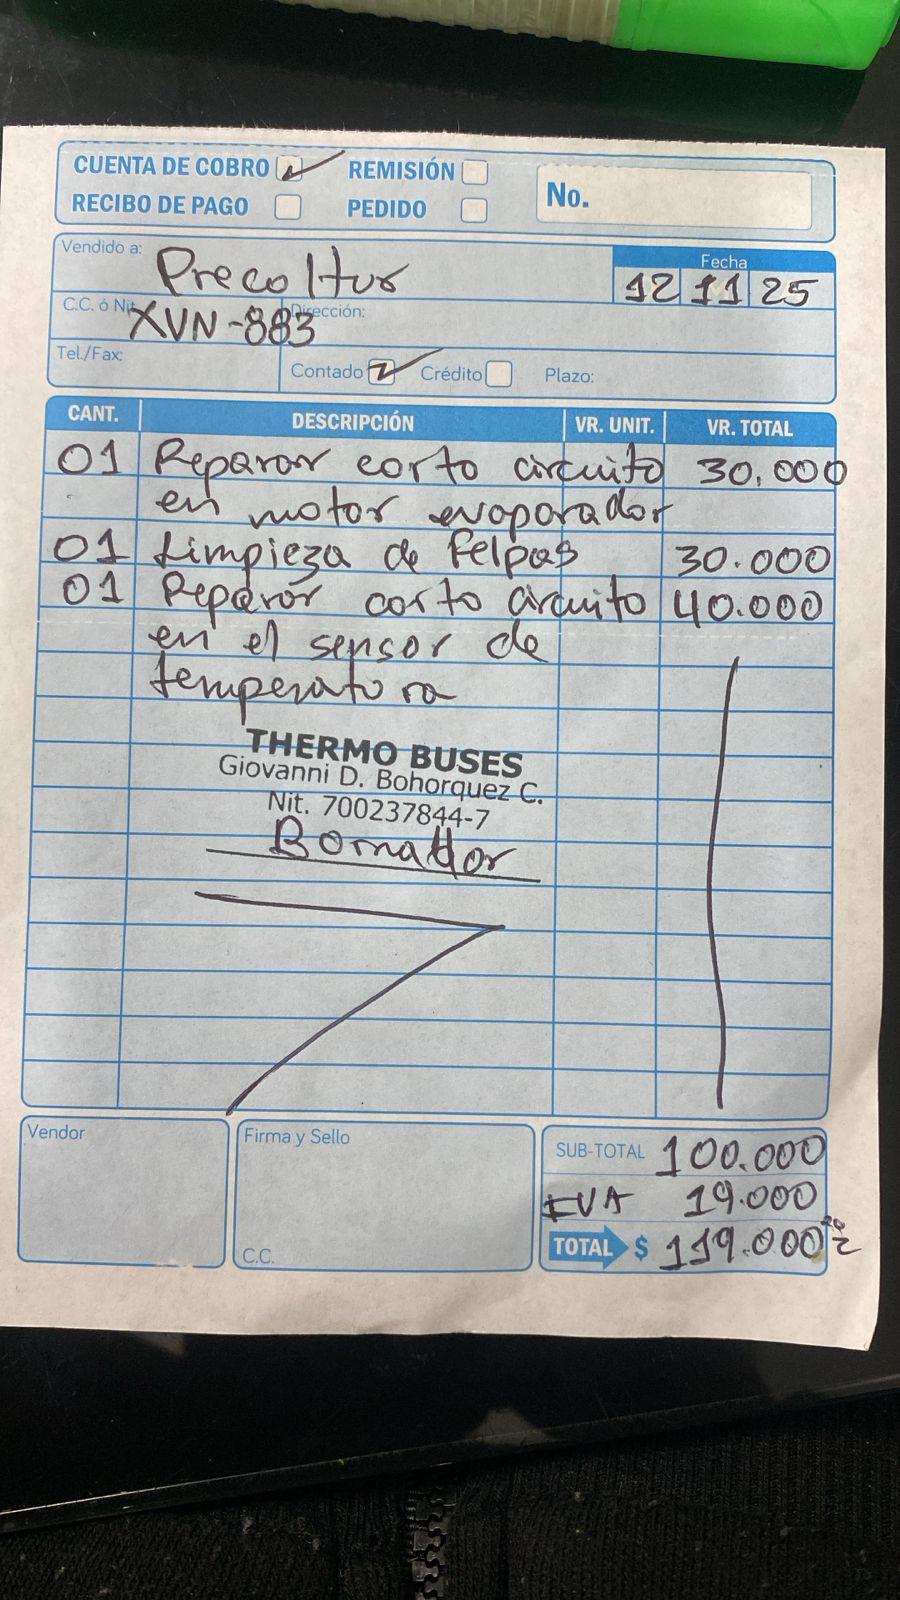 CUENTA DE COBRO
REMISIÓN
No.
RECIBO DE PAGO
PEDIDO
Vendido a: Precoltur
Fecha
12 11 25
C.C. ó Nit. XVN-883
Dirección:
Tel./Fax:
Contado
Crédito
Plazo:
CANT. DESCRIPCIÓN VR. UNIT. VR. TOTAL
01 Reparar corto circuito 30.000
en motor evaporador
01 Limpieza de Felpas 30.000
01 Reparar corto circuito 40.000
en el sensor de
temperatura
THERMO BUSES
Giovanni D. Bohorquez C.
Nit. 700237844-7
Vendor
Firma y Sello
C.C.
SUB-TOTAL 100.000
IVA 19.000
TOTAL $ 119.000